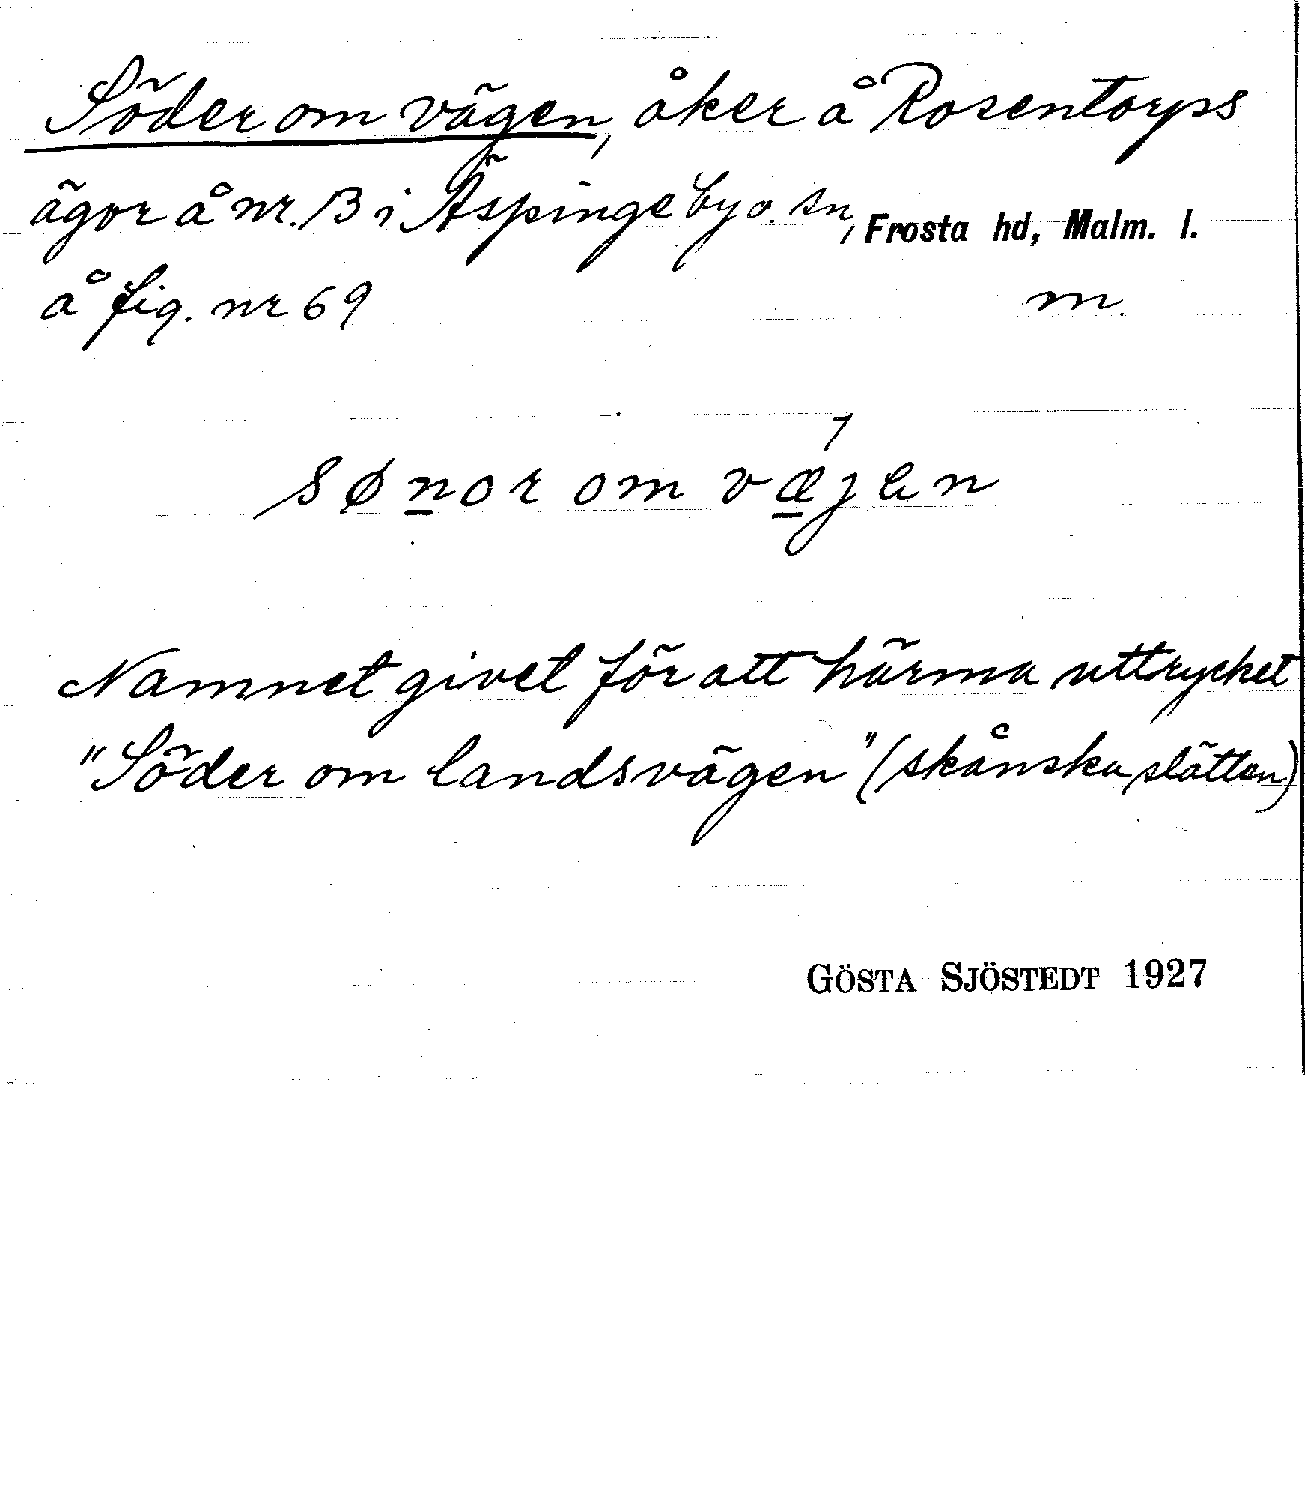 Söder om vägen, åker å Rosentorps
ägor å nr. 13 i Äspinge by o. sn, Frosta hd, Malm. l.
å fig. nr 69 m.
sønor om væjen
Namnet givet för att härma uttrycket
"Söder om landsvägen" (skånska slätten)
GÖSTA SJÖSTEDT 1927